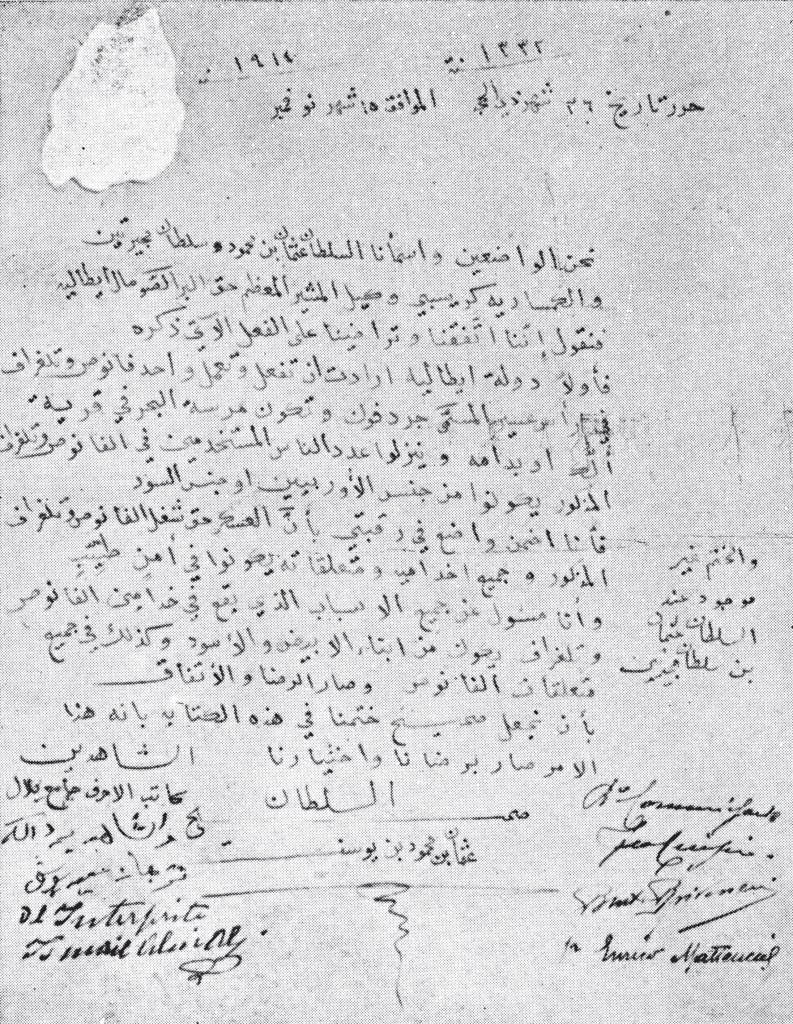 ١٣٣٢ سنة ١٩١٤ سنة
حرر تاريخ ٢٦ شهر ذي الحجر الموافق ١٥ شهر نوفمبر
نحن الواضعين واسمأنا السلطان عثمان بن محمود وسلطان
والكمساريه كريسبي وكيل المشير المعظم حق البر الصومال ايطاليه
فنقول إننا اتفقنا وتراضيننا على الفعل الآتي ذكره
فأولاً دولة ايطاليه ارادت ان تفعل وتعمل واحد فانوص وتلغراف
في رأس عسير المسمى جردفون وتكون مرسة البحر في قرية
اوبدامه وينزلوا عدد الناس المستخدمين في الفانوص وتلغراف
المذكور يكونوا من جنس الأوربيين او جنس السود
فأنا اضمن واضع في رقبتي بأن العسكر حق شغل الفانوص وتلغراف
المذكور وجميع اخدامين ومتعلقاته يكونوا في أمن طيب
وأنا مسئول عن جميع الاسباب الذي يقع في خدامين الفانوص
وتلغراف يكون من ابناء الابيض والأسود وكذلك في جميع
متعلقات الفانوص وصار الرضا والأتفاق
بأن نجعل صحيح ختمنا في هذه الكتابه بانه هذا
الامر صار برضانا واختيارنا
والختم غير
موجود عند
السلطان عثمان
بن سلطان
الشاهدين
كاتب الاحرف جامع بلال
السلطان
صح
عثمان بن محمود بن يوسف
ترجمان
Il Interprite
Ismail
Enrico Matteucci